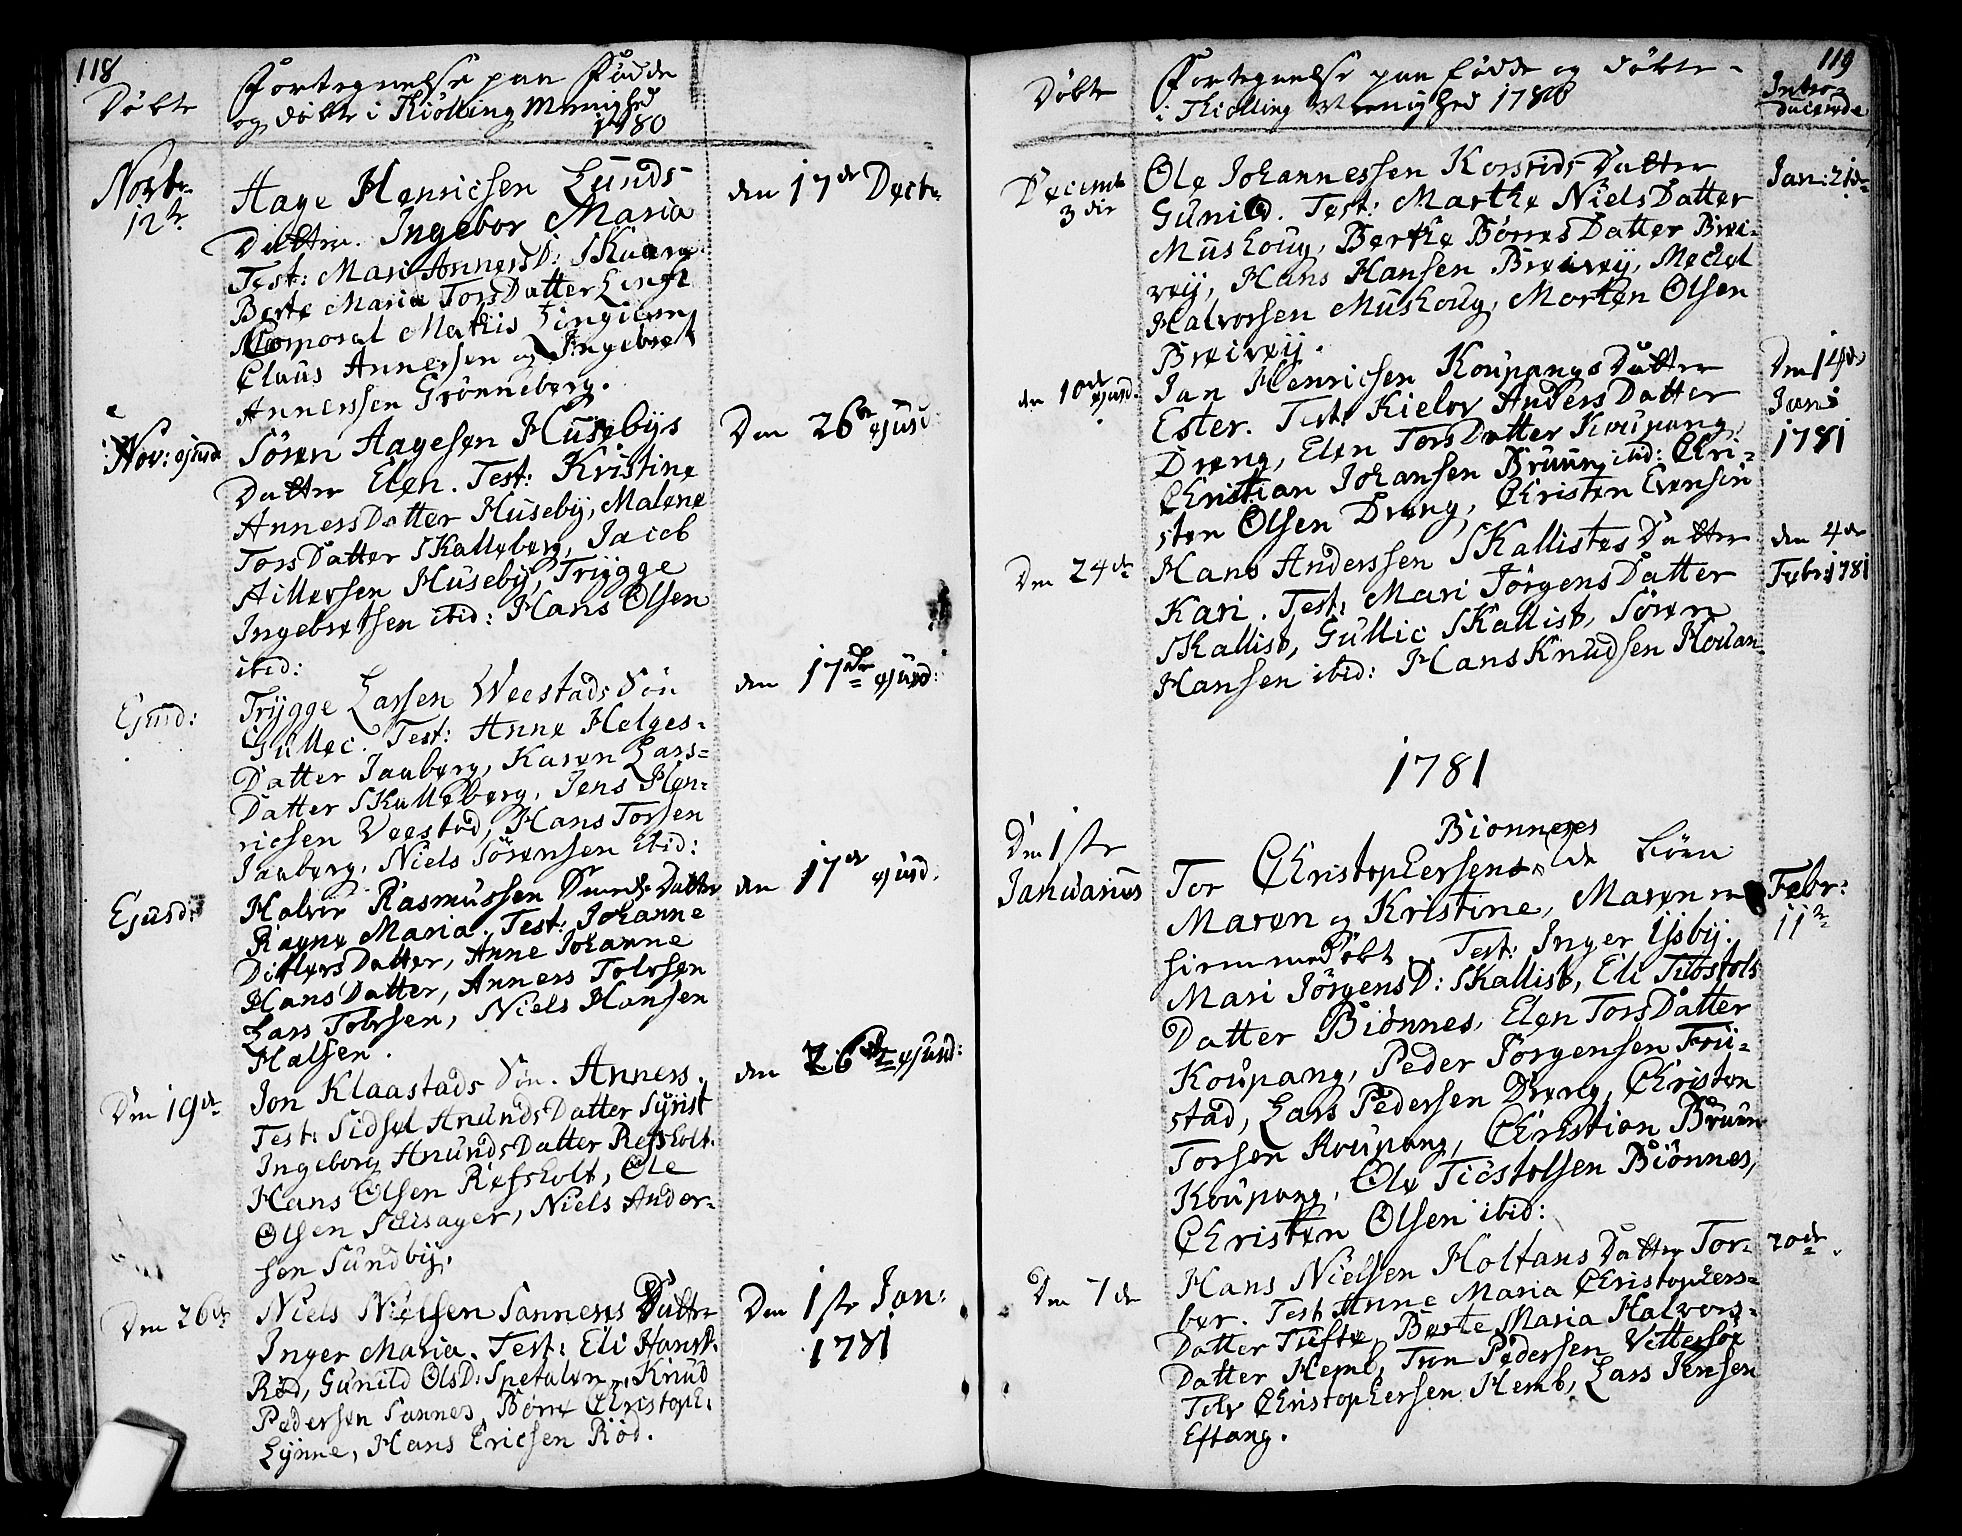 118
Døbte
Fortegnelse paa Fødde
og døbte i Kiølling Menighed
1780
Novbr
12te
Aage Henricsen Lunds
Datter. Ingebor Maria
Test: Mari AnnersD: Skaare
Berte Maria TorsDatter
Mathis
Claus Annersen og Ingebret
Annerssen Grønneberg.
den 17de Decbr
Nov: ejusd
Søren Aagesen Husebys
Datter Elen. Test: Kristine
AnnersDatter Huseby, Malene
TorsDatter Skalleberg, Jacob
Huseby, Trygge
Ingebretsen ibid: Hans Olsen
ibid:
Den 26de ejusd
Ejusd:
Trygge Larsen Weestads Søn
Gullec. Test: Anne Helges-
Datter Jauberg, Karen Lars-
Datter Skalleberg, Jens Hen-
ricsen Veestad, Hans Torsen
Jauberg, Niels Sørensen ibid:
den 17de ejusd:
Ejusd:
Halvor Rasmussen Datter
Ragne Maria. Test: Johanne
DitlevsDatter, Anne Johanne
HansDatter, Anners Tolvsen
Lars Tolvsen, Niels Hansen
Halsen.
den 17de ejusd.
Den 19de
Jon Klaastads Søn. Anners.
Test: Sidsel AnundsDatter Syrist
Ingeborg AnundsDatter Refsholt.
Hans Olsen Refsholt, Ole
Olsen Schisager, Niels Ander-
sen Sundby.
den 26de ejusd:
Den 26de
Niels Nielsen Sannes Datter
Inger Maria. Test: Eli HansD.
Rød, Gunild OlsD: Spetalen, Knud
Pedersen Sannes, Børre Christoph:
Lynne, Hans Ericsen Rød.
Den 1ste Jan:
1781
119
Døbte
Fortegnelse paa fødde og døbte
i Kiølling Menighed 1780
Intro-
ducerede
Decemb
3die
Ole Johannessen Korstids Datter
Gunild. Test: Marthe NielsDatter
Muskoug, Berthe BørresDatter Brei-
veij, Hans Hansen Breiveij, Mechel
Halvorsen Muskoug, Morten Olsen
Breiveij.
Jan: 21de
den 10de ejusd.
Jan Henricsen Koupangs Datter
Ester. Test: Kielov AndersDatter
Dreng, Elen TorsDatter Koupang,
Christian Johansen Bruun ibid: Chri-
sten Olsen Dreng, Christen Evensen
Den 14de
Jani
1781
Den 24de
Hans Anderssen Skallistes Datter
Kari. Test: Mari JørgensDatter
Skallist, Gullic Skallist, Søren
Hansen ibid: Hans Knudsen Houan
den 4de
Febr: 1781
1781
Den 1ste
Januarius
Bionneses
Tor Christophersens Børn
Maren og Kristine, Maren
hiemmedøbt. Test: Inger Ijsby.
Mari JørgensD: Skallist, Eli Tiostols
Datter Biønnes, Elen TorsDatter
Koupang, Peder Jørgensen Fris-
stad, Lars Pedersen Dreng, Christen
Torsen Koupang, Christian Bruun
Koupang, Ole Tiostolsen Biønnes,
Christen Olsen ibid:
Febr:
11te
Den 7de
Hans Nielsen Holtans Datter Tor-
ber. Test: Anne Maria Christophers-
Datter Tufte, Berte Maria Halvors-
Datter Hemb, Tron Pedersen Vittersøe
Tolv Christophersen Hemb, Lars Jensen
Eftang.
20de